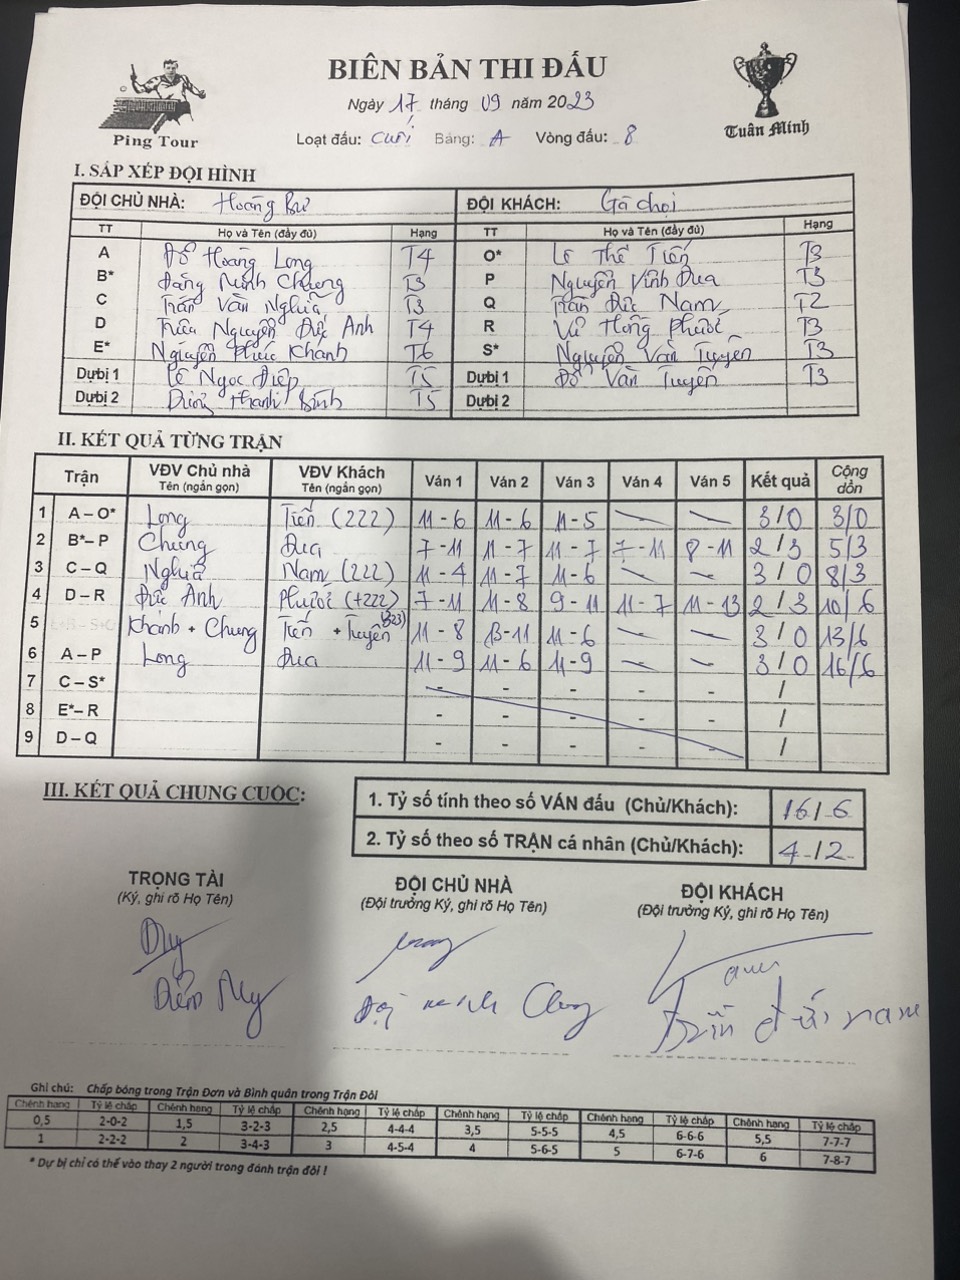 Ping Tour
BIÊN BẢN THI ĐẤU
Ngày 17 tháng 09 năm 2023
Loạt đấu: Bảng: A Vòng đấu: 8
Tuân Minh
I. SẮP XẾP ĐỘI HÌNH
ĐỘI CHỦ NHÀ: Hoàng ĐỘI KHÁCH: Gà chọi
TT Họ và Tên (đầy đủ) Hạng TT Họ và Tên (đầy đủ) Hạng
A Đỗ Hoàng Long T4 O* Lê Thế Tiến T3
B* Đặng Minh Chung T3 P Nguyễn Vĩnh Đua T3
C Trần Văn Nghĩa T3 Q Trần Đức Nam T2
D Nguyễn Đức Anh T4 R Vũ Hồng T3
E* Nguyễn Phúc Khánh T6 S* Nguyễn Văn Tuyên T3
Dự bị 1 Lê Ngọc Điệp T5 Dự bị 1 Đỗ Văn Tuyến T3
Dự bị 2 Thanh Bình T5 Dự bị 2
II. KẾT QUẢ TỪNG TRẬN
Trận VĐV Chủ nhà Tên (ngắn gọn) VĐV Khách Tên (ngắn gọn) Ván 1 Ván 2 Ván 3 Ván 4 Ván 5 Kết quả Cộng dồn
1 A – O* Long Tiến (222) 11 - 6 11 - 6 11 - 5 — — 3/0 3/0
2 B* – P Chung Đua 7 - 11 11 - 7 11 - 7 7 - 11 8 - 11 2/3 5/3
3 C – Q Nghĩa Nam (222) 11 - 4 11 - 7 11 - 6 — — 3/0 8/3
4 D – R Đức Anh (+222) 7 - 11 11 - 8 9 - 11 11 - 7 11 - 13 2/3 10/6
5 Khánh + Chung Tiến + Tuyên (323) 11 - 8 13 - 11 11 - 6 — — 3/0 13/6
6 A – P Long Đua 11 - 9 11 - 6 11 - 9 — — 3/0 16/6
7 C – S* - - - - - /
8 E* – R - - - - - /
9 D – Q - - - - - /
III. KẾT QUẢ CHUNG CUỘC:
1. Tỷ số tính theo số VÁN đấu (Chủ/Khách): 16/6
2. Tỷ số theo số TRẬN cá nhân (Chủ/Khách): 4/2
TRỌNG TÀI ĐỘI CHỦ NHÀ ĐỘI KHÁCH
(Ký, ghi rõ Họ Tên) (Đội trưởng Ký, ghi rõ Họ Tên) (Đội trưởng Ký, ghi rõ Họ Tên)
My Chung Trần đức nam
Ghi chú: Chấp bóng trong Trận Đơn và Bình quân trong Trận Đôi
Chênh hạng Tỷ lệ chấp Chênh hạng Tỷ lệ chấp Chênh hạng Tỷ lệ chấp Chênh hạng Tỷ lệ chấp Chênh hạng Tỷ lệ chấp Chênh hạng Tỷ lệ chấp
0,5 2-0-2 1,5 3-2-3 2,5 4-4-4 3,5 5-5-5 4,5 6-6-6 5,5 7-7-7
1 2-2-2 2 3-4-3 3 4-5-4 4 5-6-5 5 6-7-6 6 7-8-7
* Dự bị chỉ có thể vào thay 2 người trong đánh trận đôi !